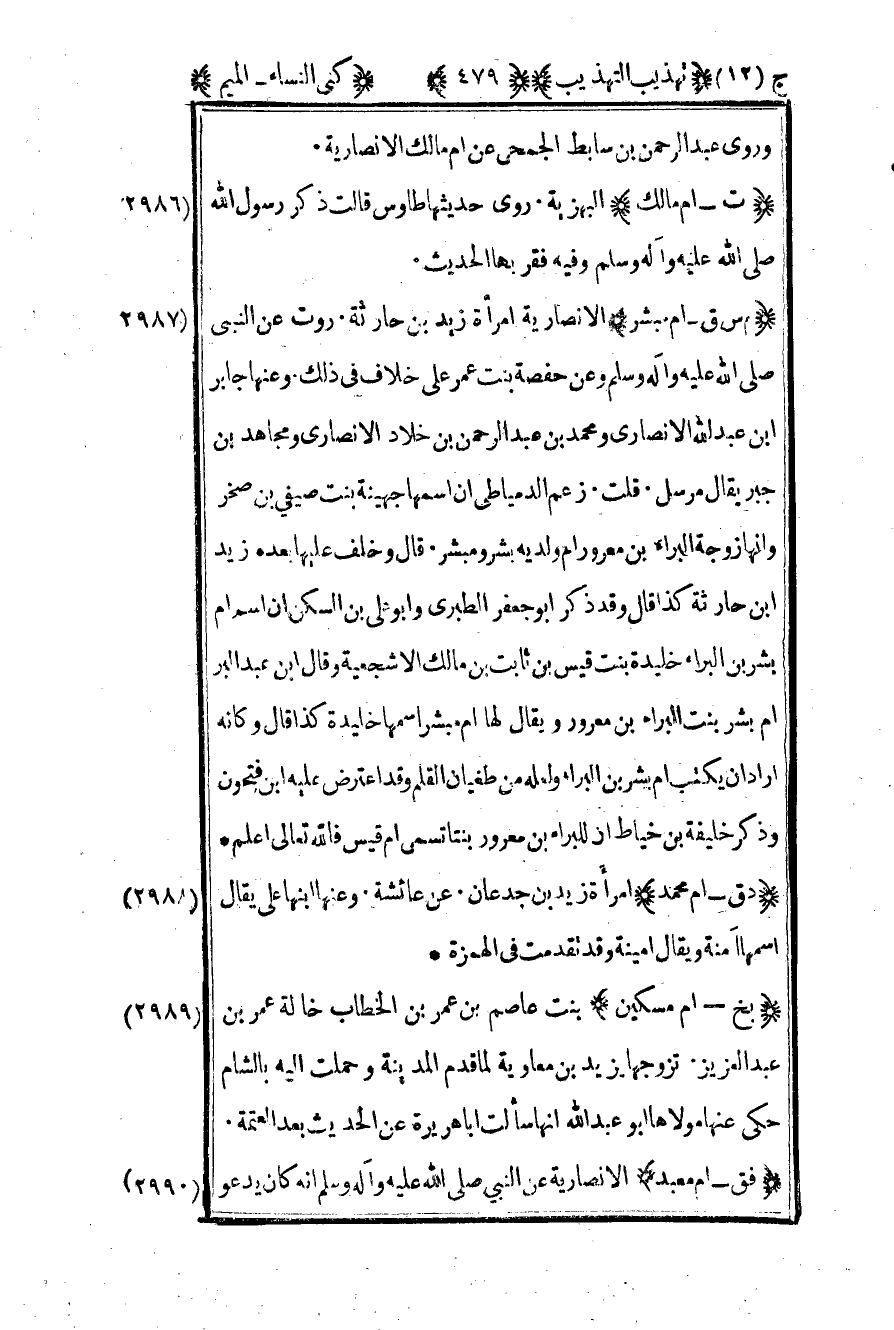 ج (١٢) ﴿تهذيب التهذيب﴾ ﴿ ٤٧٩ ﴾ ﴿كنى النساء ـ الميم﴾
وروى عبدالرحمن بن سابط الجمحى عن ام مالك الانصارية ٠
(٢٩٨٦) ﴿ ت ــ ام مالك ﴾ البهزية ٠ روى حديثها طاوس قالت ذكر رسول الله
صلى الله عليه وآله وسلم وفيه فقر بها الحديث ٠
(٢٩٨٧) ﴿ م س ق ـ ام مبشر ﴾ الانصارية امرأة زيد بن حارثة ٠ روت عن النبى
صلى الله عليه وآله وسلم وعن حفصة بنت عمر على خلاف فى ذلك ٠ وعنها جابر
ابن عبدالله الانصارى ومحمد بن عبدالرحمن بن خلاد الانصارى ومجاهد بن
جبر يقال مرسل ٠ قلت ٠ زعم الدمياطى ان اسمها جهينة بنت صيفي بن صخر
وانها زوجة البراء بن معرور ام ولديه بشر ومبشر ٠ قال وخلف عليها بعده زيد
ابن حارثة كذا قال وقد ذكر ابو جعفر الطبرى وابو على بن السكن ان اسم ام
بشر بن البراء خليدة بنت قيس بن ثابت بن مالك الاشجعية وقال ابن عبدالبر
ام بشر بنت البراء بن معرور و يقال لها ام مبشر اسمها خليدة كذا قال وكانه
ارادان يكتب ام بشر بن البراء ولعله من طغيان القلم وقد اعترض عليه ابن فتحون
وذكر خليفة بن خياط ان للبراء بن معرور بنتا تسمى ام قيس فالله تعالى اعلم *
(٢٩٨٨) ﴿ د ق ــ ام محمد ﴾ امرأة زيد بن جدعان ٠ عن عائشة ٠ وعنها ابنها على يقال
اسمها آمنة ويقال امينة وقد تقدمت فى الهمزة *
(٢٩٨٩) ﴿ بخ ــ ام مسكين ﴾ بنت عاصم بن عمر بن الخطاب خالة عمر بن
عبدالعزيز ٠ تزوجها يزيد بن معاوية لما قدم المدينة و حملت اليه بالشام
حكى عنها مولاها ابو عبدالله انها سألت اباهريرة عن الحديث بعد العتمة ٠
(٢٩٩٠) ﴿ فق ــ ام معبد ﴾ الانصارية عن النبي صلى الله عليه وآله وسلم انه كان يدعو